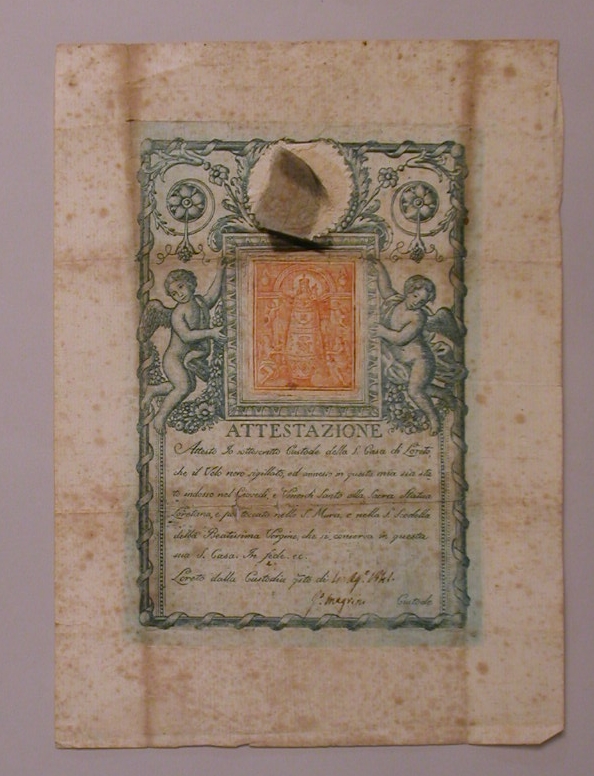 ATTESTAZIONE
Attesto Io sottoscritto Custode della S. Casa di Loreto,
che il Velo nero sigillato, ed annesso in questa mia sia sta
to indosso nel Giovedi, e Venerdi Santo alla Sacra Statua
Loretana, e poi toccato nelle S. Mura, e nella S. Scodella
della Beatissima Vergine, che si conserva in questa
sua S. Casa. In fede ec.
Loreto dalla Custodia questo di
Custode